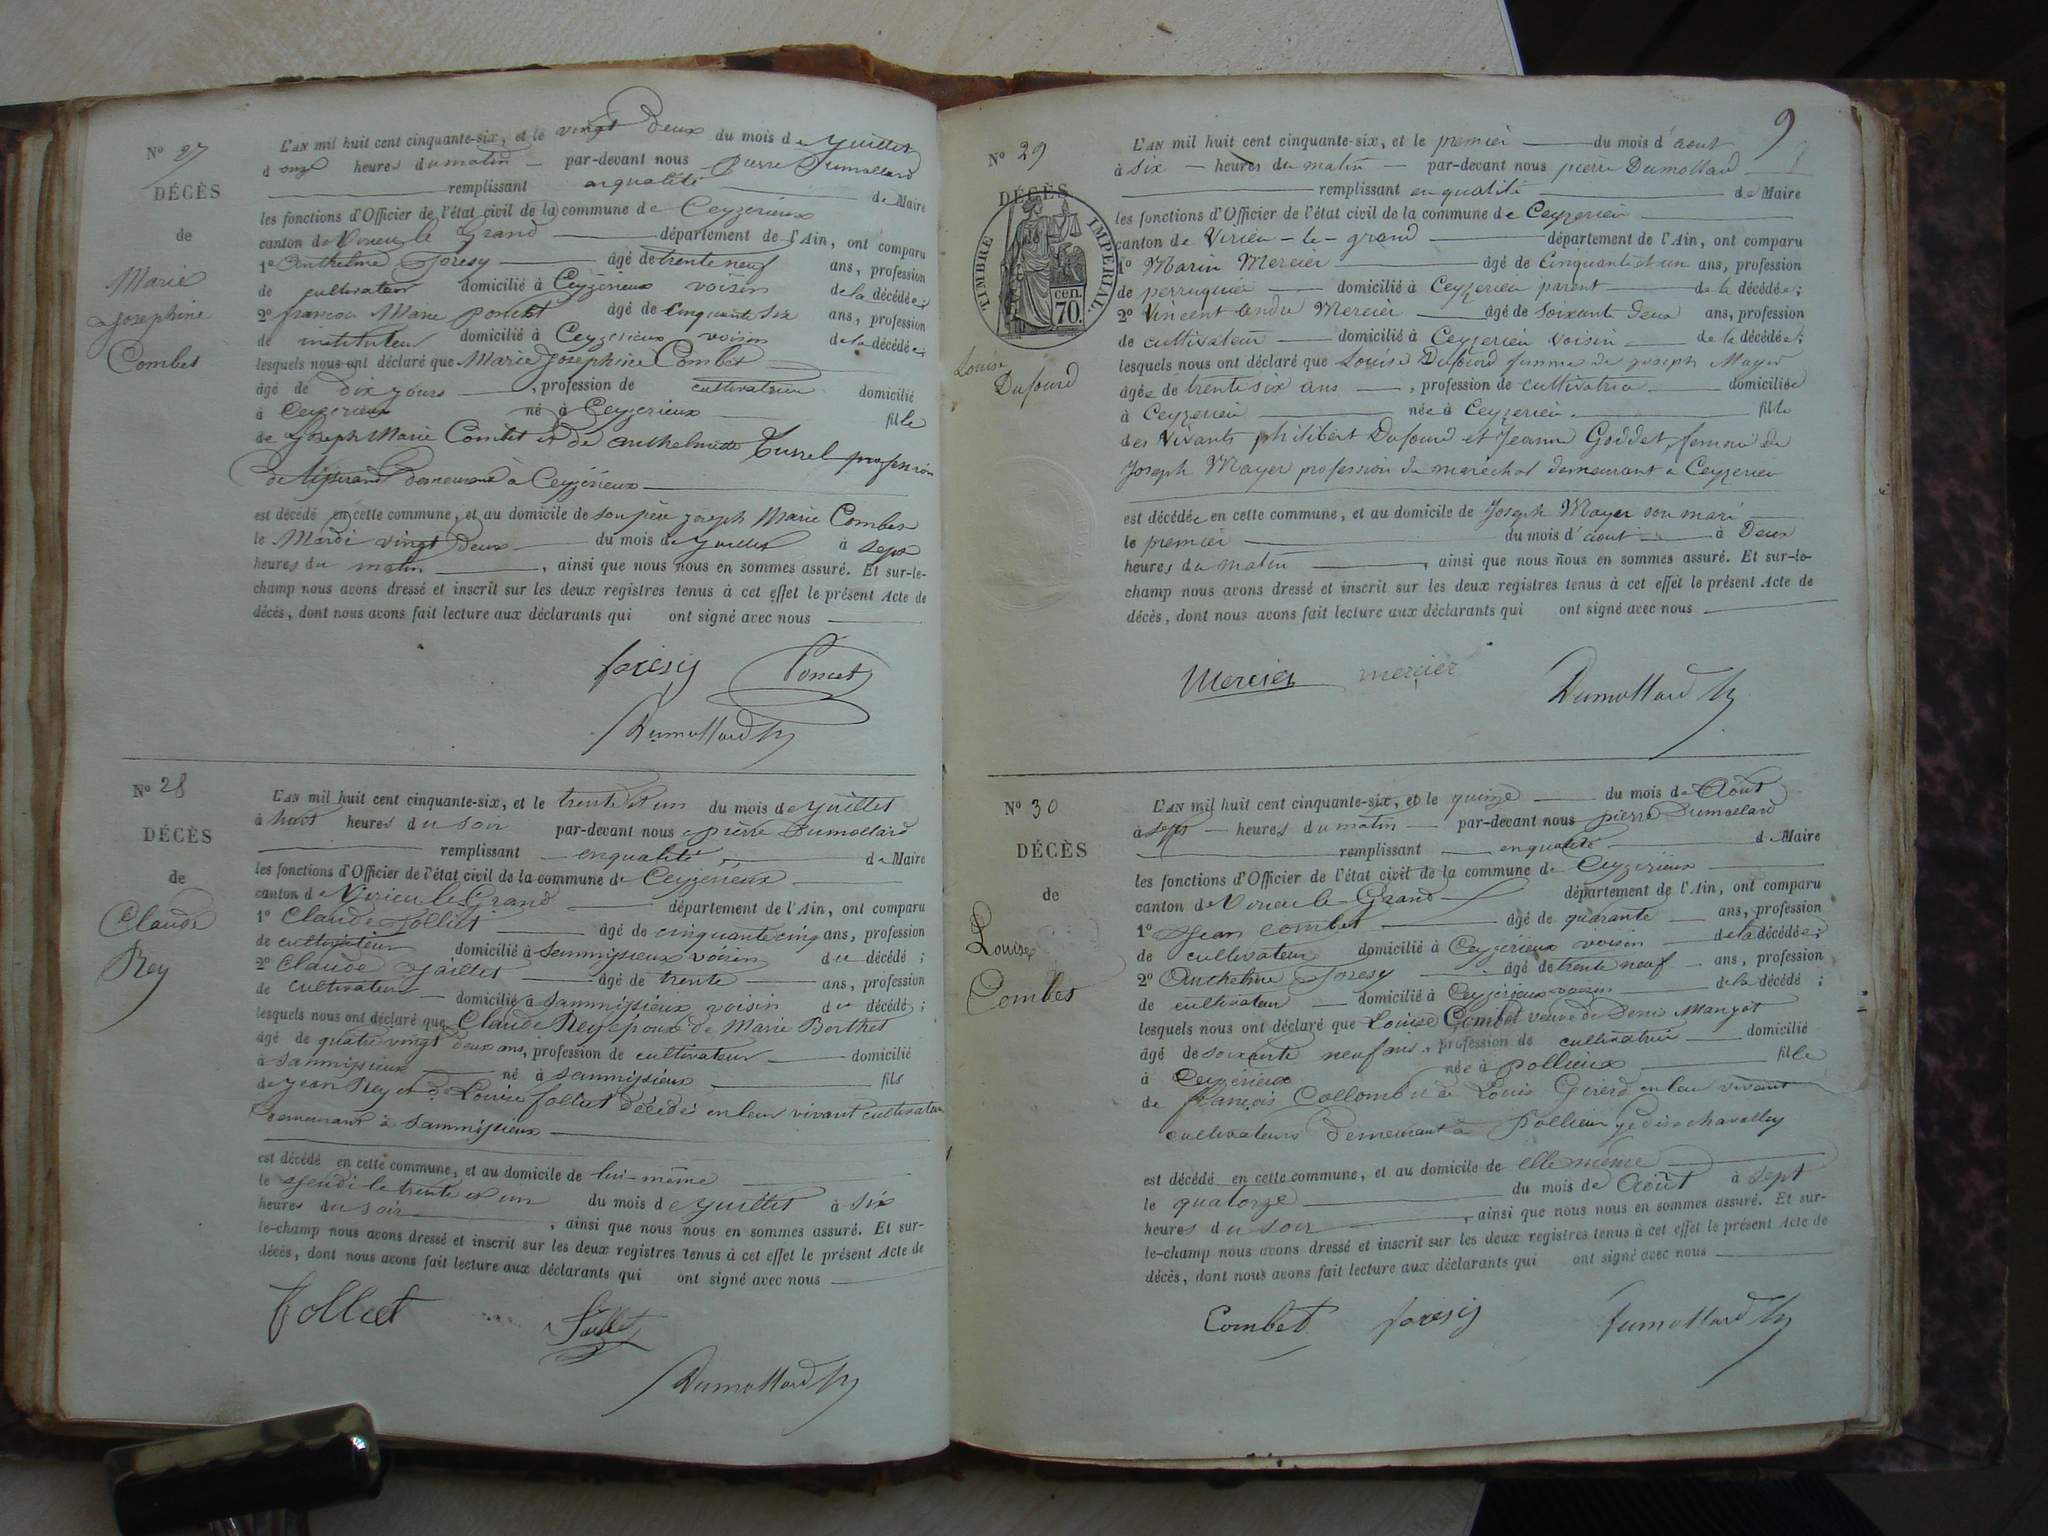 No 27
DÉCÈS
de
Marie
Josephine
Combet
L'AN mil huit cent cinquante-six, et le vingt Deux du mois de Juillet
à onze heures du matin par-devant nous Pierre Dumollard
remplissant enqualité de Maire
les fonctions d'Officier de l'état civil de la commune de Ceyzerieux
canton de Virieu le Grand département de l'Ain, ont comparu
1o Anthelme Foresy âgé de trente neuf ans, profession
de cultivateur domicilié à Ceyzérieux voisin de la décédée;
2o francois Marie poncet âgé de Cinquante six ans, profession
de instituteur domicilié à Ceyzerieux voisin de la décédée;
lesquels nous ont déclaré que Marie Josephine Combet
âgé de dix jours, profession de cultivateur domicilié
à Ceyzerieux né à Ceyzerieux fille
de Joseph Marie Combet et de anthelmette profession
de demeurant à Ceyzérieux
est décédé en cette commune, et au domicile de son père joseph Marie Combet
le Mardi vingt Deux du mois de Juillet à sept
heures du matin, ainsi que nous nous en sommes assuré. Et sur-le-
champ nous avons dressé et inscrit sur les deux registres tenus à cet effet le présent Acte de
décès, dont nous avons fait lecture aux déclarants qui ont signé avec nous
foresy Poncet
Dumollard
No 28
DÉCÈS
de
Claude
Rey
L'AN mil huit cent cinquante-six, et le trente et un du mois de juillet
à huit heures du soir par-devant nous pierre Dumollard
remplissant enqualité de Maire
les fonctions d'Officier de l'état civil de la commune de Ceyzerieux
canton de Virieu le Grand département de l'Ain, ont comparu
1o Claude Folliet âgé de cinquante cinq ans, profession
de cultivateur domicilié à Sammissieux voisin du décédé;
2o Claude Jaillet âgé de trente ans, profession
de cultivateur domicilié à Sammissieux voisin du décédé;
lesquels nous ont déclaré que Claude Rey époux de Marie Berthet
âgé de quatre vingt deux ans, profession de cultivateur domicilié
à Sammissieux né à Sammissieux fils
de jean Rey et de Louise folliet décédés en leur vivant cultivateur
Demeurant à Sammissieux
est décédé en cette commune, et au domicile de lui-même
le Jeudi le trente et un du mois de juillet à six
heures du soir, ainsi que nous nous en sommes assuré. Et sur-
le-champ nous avons dressé et inscrit sur les deux registres tenus à cet effet le présent Acte de
décès, dont nous avons fait lecture aux déclarants qui ont signé avec nous
folliet Jaillet
Dumollard
9
No 29
DÉCÈS
TIMBRE IMPÉRIAL
70 cen.
Louise
Dufourd
L'AN mil huit cent cinquante-six, et le premier du mois d'aout
à six heures du matin par-devant nous pierre Dumollard
remplissant en qualité de Maire
les fonctions d'Officier de l'état civil de la commune de Ceyzerieu
canton de Virieu-le-grand département de l'Ain, ont comparu
1o Marin Mercier âgé de Cinquante et un ans, profession
de perruquier domicilié à Ceyzerieu parent de la décédée;
2o Vincent andré Mercier âgé de soixante deux ans, profession
de cultivateur domicilié à Ceyzerieu voisin de la décédée;
lesquels nous ont déclaré que Louise Dufourd femme de joseph Mayer
âgée de trente six ans, profession de cultivatrice domiciliée
à Ceyzerieu née à Ceyzerieu fille
des vivants philibert Dufourd et Jeanne Goddet, femme de
Joseph Mayer profession de maréchal demeurant a Ceyzerieu
est décédée en cette commune, et au domicile de Joseph Mayer son mari
le premier du mois d'aout à Deux
heures du matin, ainsi que nous nous en sommes assuré. Et sur-le-
champ nous avons dressé et inscrit sur les deux registres tenus à cet effet le présent Acte de
décès, dont nous avons fait lecture aux déclarants qui ont signé avec nous
Mercier mercier Dumollard
No 30
DÉCÈS
de
Louise
Combet
L'AN mil huit cent cinquante-six, et le quinze du mois de Août
à sept heures du matin par-devant nous pierre Dumollard
remplissant enqualité de Maire
les fonctions d'Officier de l'état civil de la commune de Ceyzerieux
canton de Virieu-le-Grand département de l'Ain, ont comparu
1o Jean combet âgé de quarante ans, profession
de cultivateur domicilié à Ceyzerieux voisin de la décédée;
2o Anthelme Foresy âgé de trente neuf ans, profession
de cultivateur domicilié à Ceyzérieux voisin de la décédé;
lesquels nous ont déclaré que Louise Combet veuve de Denis Mangot
âgé de soixante neuf ans, profession de cultivatrice domicilié
à Ceyzérieux née à pollieux fille
de françois Collomb de Louis Girerd en leur vivant
cultivateurs Demeurant à Pollieu
est décédé en cette commune, et au domicile de elle même
le quatorze du mois de Août à sept
heures du soir, ainsi que nous nous en sommes assuré. Et sur-
le-champ nous avons dressé et inscrit sur les deux registres tenus à cet effet le présent Acte de
décès, dont nous avons fait lecture aux déclarants qui ont signé avec nous
Combet foresy Dumollard